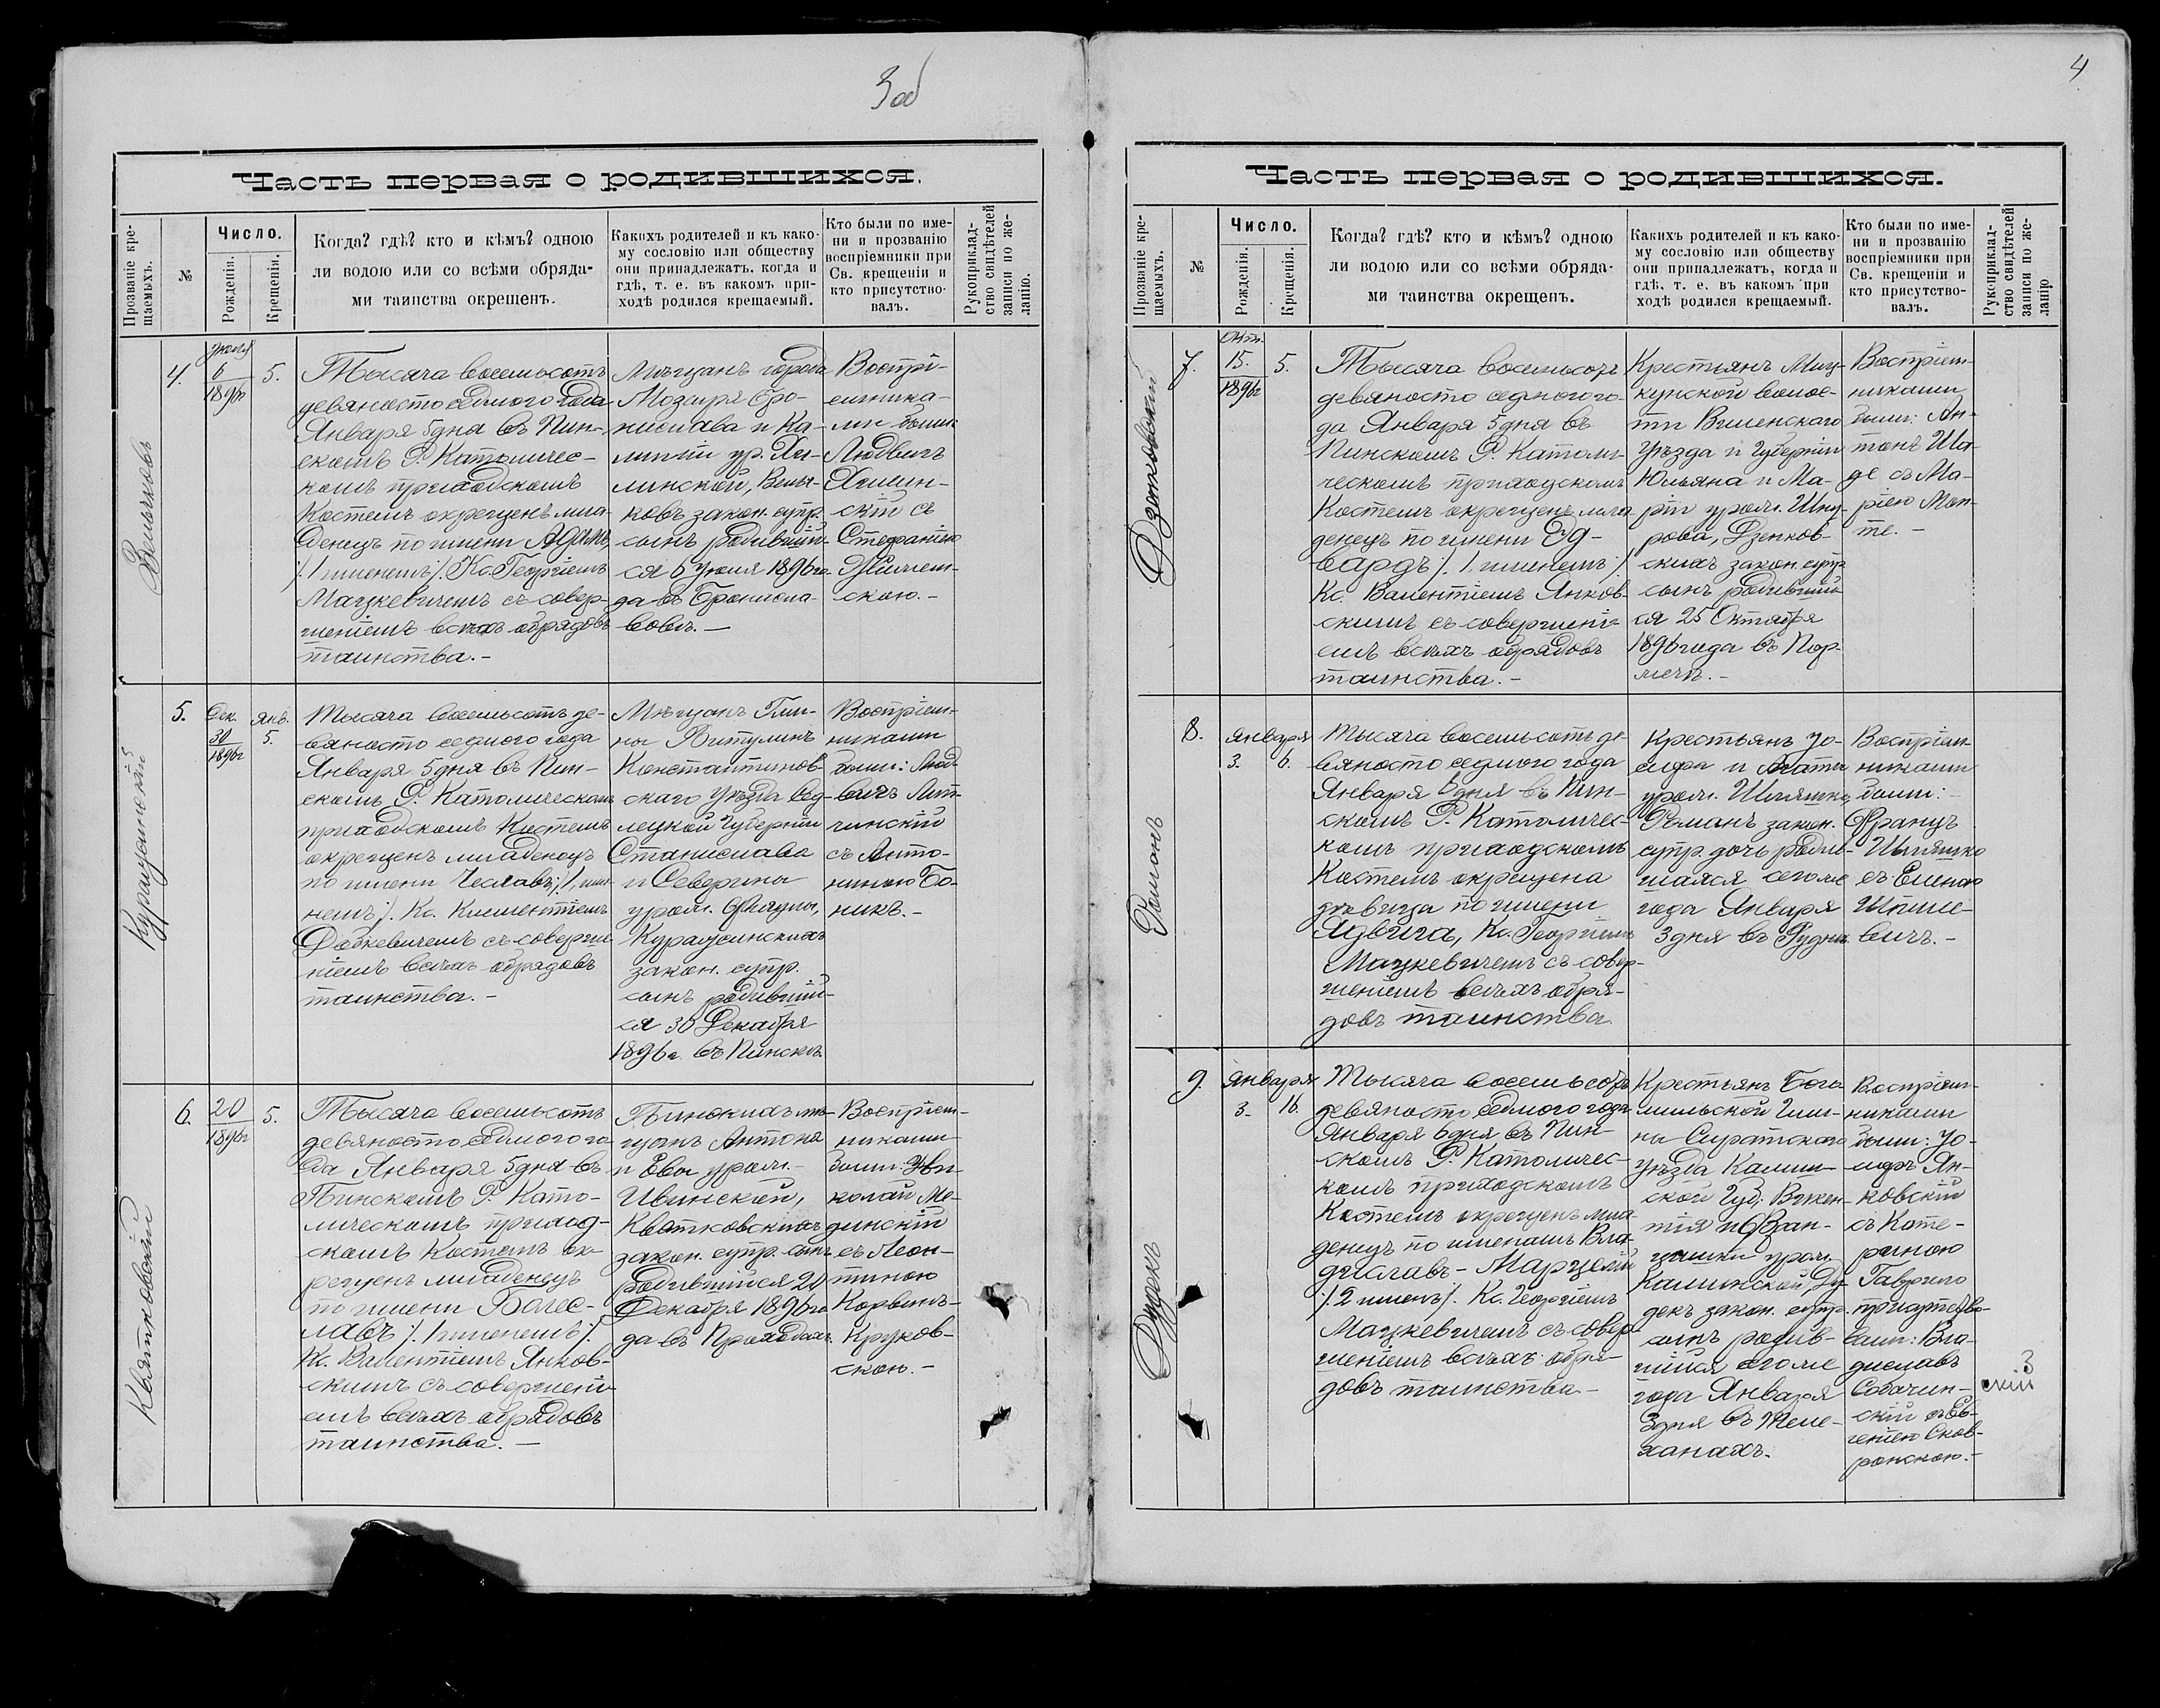 3об
Часть первая о родившихся.
Прозваніе кре-
щаемыхъ.
№
Число.
Рожденія.
Крещенія.
Когда? гдѣ? кто и кѣмъ? одною
ли водою или со всѣми обряда-
ми таинства окрещенъ.
Какихъ родителей и къ како-
му сословію или обществу
они принадлежатъ, когда и
гдѣ, т. е. въ какомъ при-
ходѣ родился крещаемый.
Кто были по име-
ни и прозванію
воспріемники при
Св. крещеніи и
кто присутство-
валъ.
Рукоприклад-
ство свидѣтелей
записи по же-
ланію.
4.
6
1896г
5.
Тысяча восемьсотъ
девяносто седмого года
Января 5 дня въ Пин-
скомъ Р. Католичес-
комъ приходскомъ
Костелѣ окрещенъ мла-
денецъ по имени Адамъ,
/. 1 именемъ /. Кс. Георгіемъ
Мацкевичемъ съ совер-
шеніемъ всѣхъ обрядовъ
таинства.-
Мѣщанъ города
Мозыря Бро-
нислава и Ка-
миліи ур. Хи-
линской,
ковъ закон. супр.
сынъ родившій-
ся 6 Іюля 1896 го-
да въ Бронисла-
вовѣ.-
Воспрі-
емника-
ми были:
Людвигъ
скій съ
Стефаніею
скою.-
Курашинскій
5.
Дек.
30
1896г
Янв.
5.
Тысяча восемьсотъ де-
вяносто седмого года
Января 5 дня въ Пин-
скомъ Р. Католическомъ
приходскомъ Костелѣ
окрещенъ младенецъ
по имени Чеславъ /. 1 име-
немъ /. Кс. Клементіемъ
съ соверше-
ніемъ всѣхъ обрядовъ
таинства.-
Мѣщанъ Гми-
ны Витулинъ
Константинов-
скаго Уѣзда Сѣд-
лецкой Губерніи
Станислава
и Северины
урож.
Курашинскихъ
закон. супр.
сынъ родившій-
ся 30 Декабря
1896 г. въ Пинскѣ.
Воспріем-
никами
были: Люд-
вигъ Лит-
чинскій
съ Анто-
ниною Бо-
никъ.-
Квятковскій
6.
20
1896г
5.
Тысяча восемьсотъ
девяносто седмого го-
да Января 5 дня въ
Пинскомъ Р. Като-
лическомъ приход-
скомъ Костелѣ ок-
рещенъ младенецъ
по имени Болес-
лавъ /. 1 именемъ /.
Кс. Валентіемъ Янков-
скимъ съ совершені-
емъ всѣхъ обрядовъ
таинства.-
Пинскихъ мѣ-
щанъ Антона
и Евы урож.
Ивинской,
Квятковскихъ
закон. супр. сынъ
родившійся 20
Декабря 1896 го-
да въ
Воспріем-
никами
были: Ни-
колай Ме-
динскій
съ Леон-
тиною
Корвинъ-
Круков-
скою.-
4
Часть первая о родившихся.
Прозваніе кре-
щаемыхъ.
№
Число.
Рожденія.
Крещенія.
Когда? гдѣ? кто и кѣмъ? одною
ли водою или со всѣми обряда-
ми таинства окрещенъ.
Какихъ родителей и къ како-
му сословію или обществу
они принадлежатъ, когда и
гдѣ, т. е. въ какомъ при
ходѣ родился крещаемый.
Кто были по име-
ни и прозванію
воспріемники при
Св. крещеніи и
кто присутство-
валъ.
Рукоприклад-
ство свидѣтелей
записи по же-
ланію
Дзенковскій
7.
Окт.
15.
1896г
5.
Тысяча восемьсотъ
девяносто седмого го-
да Января 5 дня въ
Пинскомъ Р. Католи-
ческомъ приходскомъ
Костелѣ окрещенъ мла-
денецъ по имени Эд-
вардъ /. 1 именемъ /.
Кс. Валентіемъ Янков-
скимъ съ совершені-
емъ всѣхъ обрядовъ
таинства.-
Крестьянъ Миц-
кунской волос-
ти Виленскаго
Уѣзда и Губерніи
Юльяна и Ма-
ріи урож.
рова, Дзенков-
скихъ закон. супр.
сынъ родившій-
ся 25 Октября
1896 года въ Пор-
Воспріем-
никами
были: Ан-
тонъ
съ Ма-
ріею Мон-
те.-
Романъ
8.
Января
3.
6.
Тысяча восемьсотъ де-
вяносто седмого года
Января 6 дня въ Пин-
скомъ Р. Католичес-
комъ приходскомъ
Костелѣ окрещена
дѣвица по имени
Ядвига, Кс. Георгіемъ
Мацкевичемъ съ совер-
шеніемъ всѣхъ обря-
довъ таинства.
Крестьянъ Іо-
сифа и Агаты
урож. Шляшко,
Романъ закон.
супр. дочь родив-
шаяся сего же
года Января
3 дня въ Рудкѣ
Воспріем-
никами
были:
Францъ
Шляшко
съ Еленою
Шпиле-
вичъ.-
Дудекъ
9.
Января
3.
16.
Тысяча восемьсотъ
девяносто седмого года
Января 6 дня въ Пин-
скомъ Р. Католичес-
комъ приходскомъ
Костелѣ окрещенъ мла-
денецъ по именамъ Вла-
диславъ-Марцелій
/. 2 именъ /. Кс. Георгіемъ
Мацкевичемъ съ совер-
шеніемъ всѣхъ обря-
довъ таинства.-
Крестьянъ Бога-
Гми-
ны
уѣзда Калиш-
ской Губ. Викен-
тія и Фран-
цишки урож.
Калинской, Ду-
декъ закон. супр.
сынъ родив-
шійся сего же
года Января
3 дня въ Теле-
ханахъ.
Воспріем-
никами
были: Іо-
сифъ Ян-
ковскій
съ Кате-
риною
Гаврило
присутство-
вали: Вла-
диславъ
Собачин-
скій съ Ев-
геніею Сков-
ронскою.-
3
скій